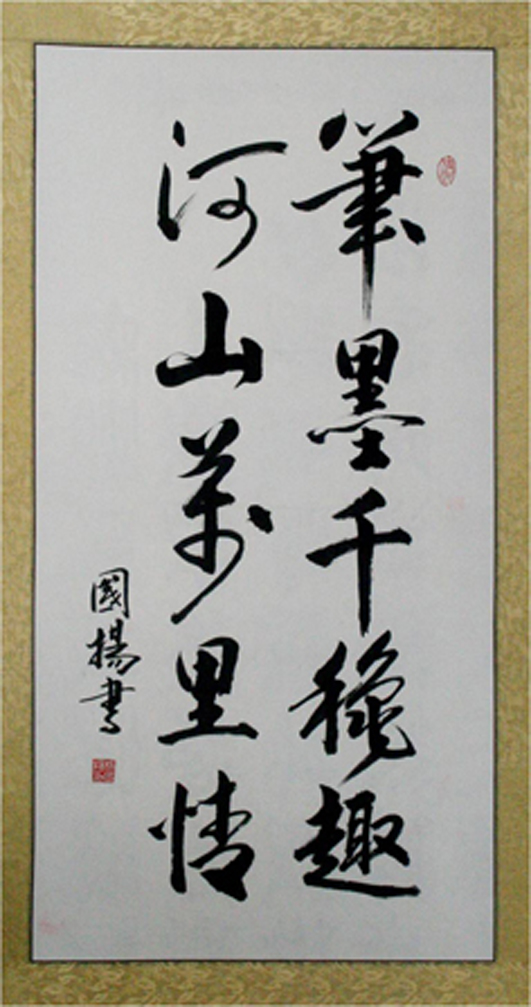 筆墨千穐趣
河山萬里情
國揚書